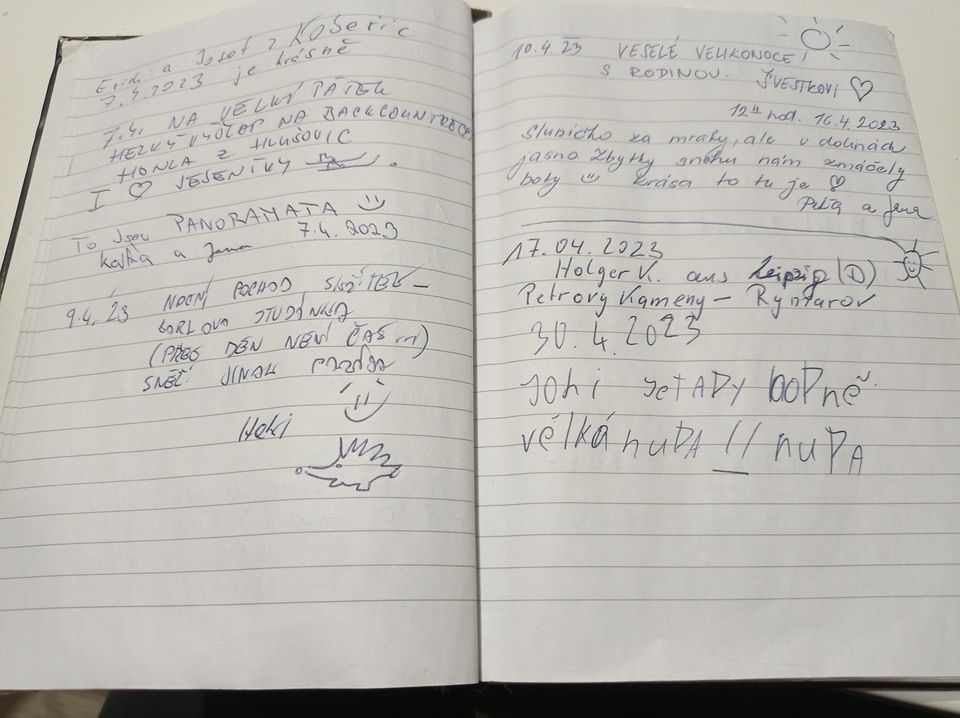 a Josef z Košeřic
7.4.2023 je krásně
7.4. NA VELKÝ PÁTEK
HEZKÝ VÝŠLAP NA BACKCOUNTRECH
HONZA Z HLUŠOVIC
I ♡ JESENÍKY
To jsou PANORAMATA
Katka a Jana 7.4.2023
9.4.23 NOČNÍ POCHOD SKŘÍTEK –
KARLOVA STUDÁNKA
(PŘES DEN NENÍ ČAS ...)
SNĚŽÍ JINAK PARÁDA
10.4.23 VESELÉ VELIKONOCE
S RODINOU. ŠVESTKOVI ♡
12 hod. 16.4.2023
Sluníčko za mraky, ale v dolinách
jasno Zbytky sněhu nám zmáčely
boty krása to tu je ♡
a Jana
17.04.2023
Holger K. aus Leipzig (D)
Petrovy Kameny – Rymarov
30.4.2023
JOHI JETADY hODně
vélká nuDA !! nuDA